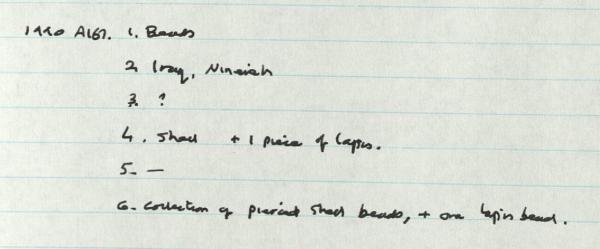 A167. 1. Beads
2. Iraq, Nineveh
3. ?
4. Shell + 1 piece of lapis.
5. —
6. Collection of pierced shell beads, + one lapis bead.